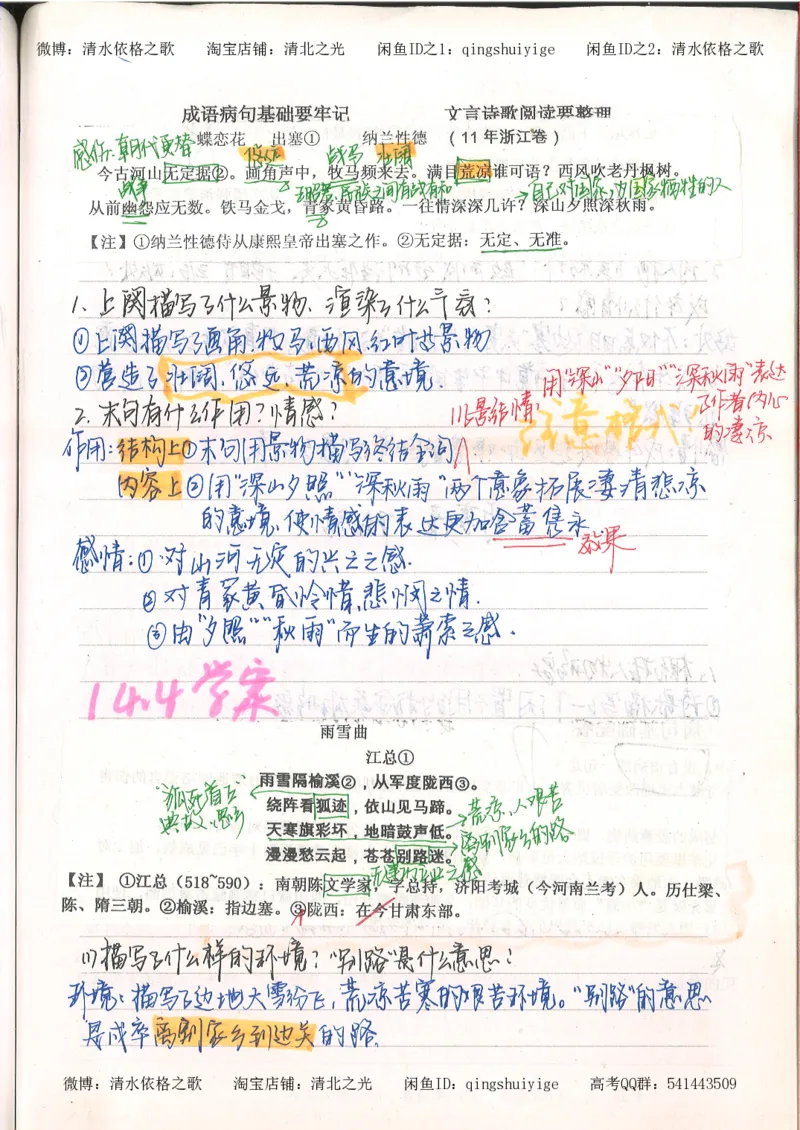 微博：清水依格之歌 淘宝店铺：清北之光 闲鱼ID之1：qingshuiyige 闲鱼ID之2：清水依格之歌
成语病句基础要牢记 文言诗歌阅读要整理
感伤：朝代更替
蝶恋花 出塞① 纳兰性德 （11年浙江卷）
悠远 战马 壮阔
今古河山无定据②。画角声中，牧马频来去。满目荒凉谁可语？西风吹老丹枫树。
战争
从前幽怨应无数。铁马金戈，青冢黄昏路。一往情深深几许？深山夕照深秋雨。
【注】①纳兰性德侍从康熙皇帝出塞之作。②无定据：无定、无准。
1. 上阕描写了什么景物，渲染了什么气氛？
①上阕描写了画角，牧马，西风，红叶
②营造了壮阔，悠远，荒凉的意境.
2. 末句有什么作用？情感？
以景结情：用"深山""夕阳""深秋雨"表达
作者内心
的凄凉
注意格式！
作用：结构上①末句用景物描写终结全词
内容上②用"深山夕照""深秋雨"两个意象拓展凄清悲凉
的意境，使情感的表达更加含蓄隽永
效果
感情：①对山河无定的兴亡之感.
②对青冢黄昏怜惜，悲悯之情.
③由"夕照""秋雨"而生的萧索之感.
14.4 学案
雨雪曲
江总①
雨雪隔榆溪②，从军度陇西③。
"狐死首丘"
典故，思乡
绕阵看狐迹，依山见马蹄。
荒凉，人艰苦
天寒旗彩坏，地暗鼓声低。
离别家乡的路
漫漫愁云起，苍苍别路迷。
无建功立业之感
【注】 ①江总（518~590）：南朝陈文学家，字总持，济阳考城（今河南兰考）人。历仕梁、
陈、隋三朝。②榆溪：指边塞。③陇西：在今甘肃东部。
(1)描写了什么样的环境？"别路"是什么意思？
环境：描写了边地大雪纷飞，荒凉苦寒的艰苦环境。"别路"的意思
是戍卒离别家乡到边关的路.
微博：清水依格之歌 淘宝店铺：清北之光 闲鱼ID：qingshuiyige 高考QQ群：541443509